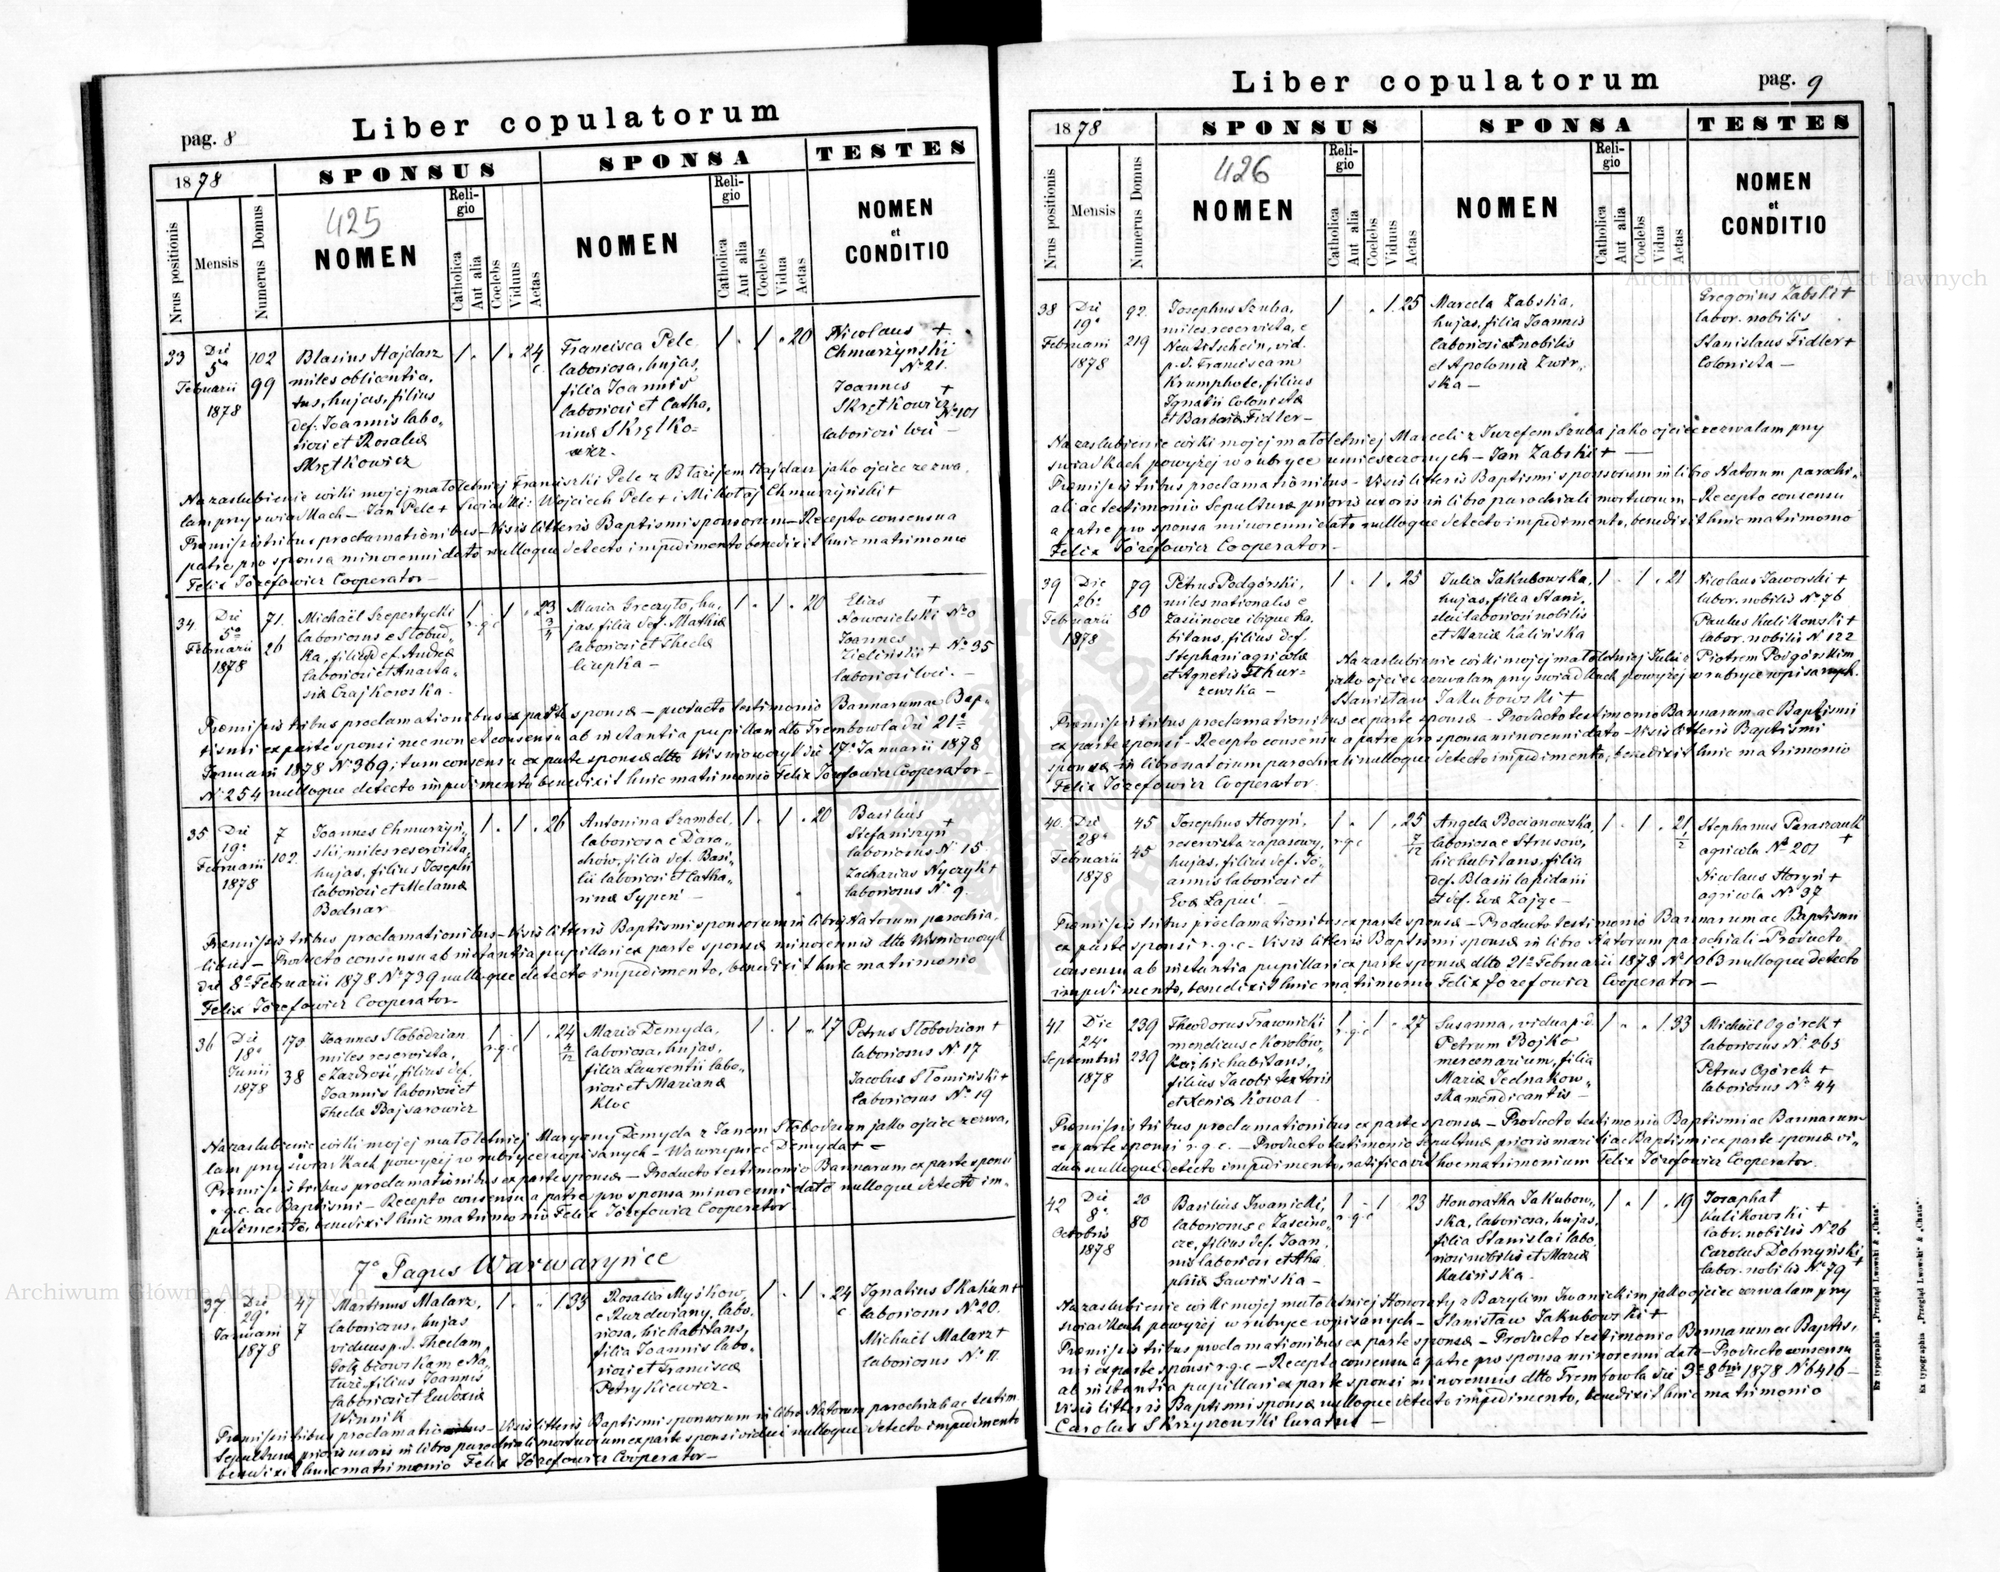 pag. 8
Liber copulatorum
1878
SPONSUS
SPONSA
TESTES
Nrus positionis
Mensis
Numerus Domus
425
NOMEN
Religio
Catholica
Aut alia
Coelebs
Viduus
Aetas
NOMEN
Religio
Catholica
Aut alia
Coelebs
Vidua
Aetas
NOMEN
et
CONDITIO
33
Die
5a
Februarii
1878
102
99
Blasius Hajdasz
miles
hujas, filius
def. Joannis labo-
riosi et Rosaliæ
Skrętkowicz
1 . 1 . 24
Francisca Pele
laboriosa, hujas,
filia Joannis
laboriosi et Catha-
rinæ Skrętko-
wicz.
1 . 1 . 20
Nicolaus +
Chmurzyński
No 21.
Joannes +
Skrętkowicz
No 101
laboriosi loci
Na zaślubienie córki mojej małoletniej Franciszki Pele z Błażejem Hajdasz jako ojciec zezwa-
lam przy świadkach – Jan Pele + Świadki: Wojciech Pele + i Mikołaj Chmurzyński +
Præmissis tribus proclamationibus – Visis litteris Baptismi sponsorum – Recepto consensu a
patre pro sponsa minorenni dato nulloque detecto impedimento benedixit huic matrimonio
Felix Józefowicz Cooperator –
34
Die
5a
Februarii
1878
71.
26
Michaël Szepertycki
laboriosus e Słobud-
ka, filius def. Andreæ
laboriosi et Anasta-
siæ Czajkowska.
1
r.g.c
1 . 23
Maria Greczyło, hu-
jas, filia def. Mathiæ
laboriosi et Theclæ
Czepka –
1 . 1 . 20
Elias +
Nowosielski No 0
Joannes
Zieliński + No 35
laboriosi loci. –
Præmissis tribus proclamationibus ex parte sponsæ – producto testimonio Bannarum ac Bap-
tismi ex parte sponsi nec non et consensu ab instantia pupillari dto Trembowla die 21a
Januarii 1878 No 369, itum consensu ex parte sponsæ dtto Wisniowczyk die 17a Januarii 1878
No 254 nulloque detecto impedimento benedixit huic matrimonio Felix Józefowicz Cooperator –
35
Die
19a
Februarii
1878
7
102.
Joannes Chmurzyń-
ski, miles reservista,
hujas, filius Josephi
laboriosi et Melaniæ
Bodnar
1 . 1 . 26
Antonina Szambel,
laboriosa e Dara-
chów, filia def. Basi-
lii laboriosi et Catha-
rinæ Sypeń –
1 . 1 . 20
Basilius
Stefaniszyn +
laboriosus No 15
Zacharias Nyczyk +
laboriosus No 9.
Præmissis tribus proclamationibus – Visis litteris Baptismi sponsorum in libris Natorum parochia-
libus – Producto consensu ab instantia pupillari ex parte sponsæ minorennis dtto Wiśniowczyk
die 8a Februarii 1878 No 739 nulloque detecto impedimento, benedixit huic matrimonio
Felix Józefowicz Cooperator –
36
Die
18a
Junii
1878
179
38
Joannes Słobodzian
miles reservista,
e Zazdrość, filius def.
Joannis laboriosi et
Theclæ Bajsarowicz
1
r.g.c
1 . 24
4/12
Maria Demyda,
laboriosa, hujas,
filia Laurentii labo-
riosi et Mariannæ
Kloc
1 . 1 . 17
Petrus Słobodzian +
laboriosus No 17
Jacobus Słomiński +
laboriosus No 19
Na zaślubienie córki mojej małoletniej Maryanny Demyda z Janem Słobodzian jako ojciec zezwa-
lam przy świadkach powyżej w rubryce wpisanych – Wawrzyniec Demyda + –
Præmissis tribus proclamationibus ex parte sponsæ – Producto testimonio Bannarum ex parte sponsi
r.g.c. ac Baptismi – Recepto consensu a patre pro sponsa minorenni dato nulloque detecto im-
pedimento, benedixit huic matrimonio Felix Józefowicz Cooperator
7o Pagus Warwaryńce
37
Die
29a
Januarii
1878
47
7
Martinus Malarz,
laboriosus, hujas
viduus p.d. Theclam
Gołębiowskam e Na-
tuże, filius Joannis
laboriosi et Eudoxiæ
Winnik
1 . . 1 33
Rosalia Myśkow,
e Ruzdwiany, labo-
riosa, hic habitans,
filia Joannis labo-
riosi et Franciscæ
Petrykiewicz.
1 . 1 . 24
Ignatius Skakun +
laboriosus No 20.
Michaël Malarz +
laboriosus No 11.
Præmissis tribus proclamationibus – Visis litteris Baptismi sponsorum in libro Natorum parochiali ac testim.
Sepulturæ prioris uxoris in libro parochiali mortuorum ex parte sponsi vidui nulloque detecto impedimento
benedixit huic matrimonio Felix Józefowicz Cooperator –
Liber copulatorum
pag. 9
1878
SPONSUS
SPONSA
TESTES
Nrus positionis
Mensis
Numerus Domus
426
NOMEN
Religio
Catholica
Aut alia
Coelebs
Viduus
Aetas
NOMEN
Religio
Catholica
Aut alia
Coelebs
Vidua
Aetas
NOMEN
et
CONDITIO
38
Die
19a
Februarii
1878
92.
219
Josephus Szuba,
miles reservista, e
Neutitschein, vid.
p.d. Franciscam
Krumphole, filius
Ignatii Colonistæ
et Barbaræ Fidler –
1 . 1. 25
Marcela Zabska,
hujas, filia Joannis
laboriosi nobilis
et Apoloniæ Zwir-
ska –
Gregorius Zabski +
labor. nobilis
Stanislaus Fidler +
Colonista –
Na zaślubienie córki mojej małoletniej Marceli z Juzefem Szuba jako ojciec zezwalam przy
świadkach powyżej w rubryce umieszczonych – Jan Zabski + –
Præmissis tribus proclamationibus – Visis litteris Baptismi sponsorum in libro Natorum parochi-
ali ac testimonio Sepulturæ prioris uxoris in libro parochiali mortuorum – Recepto consensu
a patre pro sponsa minorenni dato nulloque detecto impedimento, benedixit huic matrimonio
Felix Józefowicz Cooperator –
39
Die
26a
Februarii
1878
79
80
Petrus Podgórski,
miles nationalis e
Zaścinocze ibique ha-
bitans, filius def.
Stephani agricolæ
et Agnetis Thur-
zewska –
1 . 1 . 25
Julia Jakubowska,
hujas, filia Stani-
slai laboriosi nobilis
et Mariæ Kalińska
1 . 1 . 21
Nicolaus Jaworski +
labor. nobilis No 76
Paulus Kulikowski +
labor. nobilis N 122
Na zaślubienie córki mojej małoletniej Julii z Piotrem Podgórskim
jako ojciec zezwalam przy świadkach powyżej w rubryce wpisanych.
Stanisław Jakubowski +
Præmissis tribus proclamationibus ex parte sponsæ – Producto testimonio Bannarum ac Baptismi
ex parte sponsi – Recepto consensu a patre pro sponsa minorenni dato – Visis litteris Baptismi
sponsæ in libro natorum parochiali nulloque detecto impedimento, benedixit huic matrimonio
Felix Józefowicz Cooperator
40.
Die
28a
Februarii
1878
45
45
Josephus Horyń,
reservista zapasowy,
hujas, filius def. Jo-
annis laboriosi et
Evæ Łapuć. –
1 .
r.g.c
1 . 25
7/12
Angela Bocianowska,
laboriosa e Strusow,
hic habitans, filia
def. Blasii lapidarii
et def. Evæ Zając –
1 . 1 . 21
1/2
Stephanus Paraszczuk
agricola No 201 +
Nicolaus Horyń +
agricola No 37
Præmissis tribus proclamationibus ex parte sponsæ – Producto testimonio Bannarum ac Baptismi
ex parte sponsi r.g.c – Visis litteris Baptismi sponsæ in libro Natorum parochiali – Producto
consensu ab instantia pupillari ex parte sponsæ dtto 21a Februarii 1878 No 1063 nulloque detecto
impedimento, benedixit huic matrimonio Felix Józefowicz Cooperator –
41
Die
24a
Septembris
1878
239
239
Theodorus Trawnicki
mendicus e Korolów-
ka, hic habitans,
filius Jacobi textoris
et Xeniæ Kowal
1 .
r.g.c
1 . 27
Susanna, vidua p.d.
Petrum Bojko
mercenarium, filia
Mariæ Jednakow-
ska mendicantis –
1 . . 1. 33
Michaël Ogórek +
laboriosus No 265
Petrus Ogórek +
laboriosus No 44
Præmissis tribus proclamationibus ex parte sponsæ – Producto testimonio Baptismi ac Bannarum
ex parte sponsi r.g.c. – Producto testimonio Sepulturæ prioris mariti ac Baptismi ex parte sponsæ vi-
duæ nulloque detecto impedimento, ratificavit hoc matrimonium Felix Józefowicz Cooperator.
42
Die
8a
Octobris
1878
20
80
Basilius Iwanicki,
laboriosus e Zaścino-
cze, filius def. Joan-
nis laboriosi et Aha-
phiæ Gawińska –
1 .
r.g.c
1 . 23
Honoratha Jakubow-
ska, laboriosa, hujas,
filia Stanislai labo-
riosi nobilis et Mariæ
Kalińska.
1 . 1 . 19
Josaphat
Kulikowski +
labr. nobilis N 26
Carolus Dobrzyński +
labor. nobilis No 79
Na zaślubienie córki mojej małoletniej Honoraty z Bazylim Iwanickim jako ojciec zezwalam przy
świadkach powyżej w rubryce wpisanych – Stanisław Jakubowski +
Præmissis tribus proclamationibus ex parte sponsæ – Producto testimonio Bannarum ac Baptis-
mi ex parte sponsi r.g.c – Recepto consensu a patre pro sponsa minorenni dato – Producto consensu
ab instantia pupillari ex parte sponsi minorennis dtto Trembowla die 3a 8bris 1878 No 6416 –
Visis litteris Baptismi sponsæ nulloque detecto impedimento, benedixit huic matrimonio
Carolus Skrzyszowski Curatus –
Ex typographia „Przegląd Lwowski & „Chata".
Ex typographia „Przegląd Lwowski" & „Chata".
Archiwum Główne Akt Dawnych
Archiwum Główne Akt Dawnych